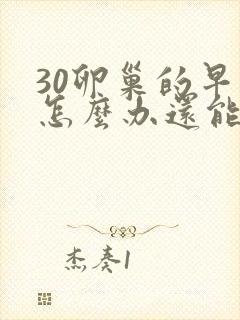 30卵巢的早
怎麼办還能
杰奏1